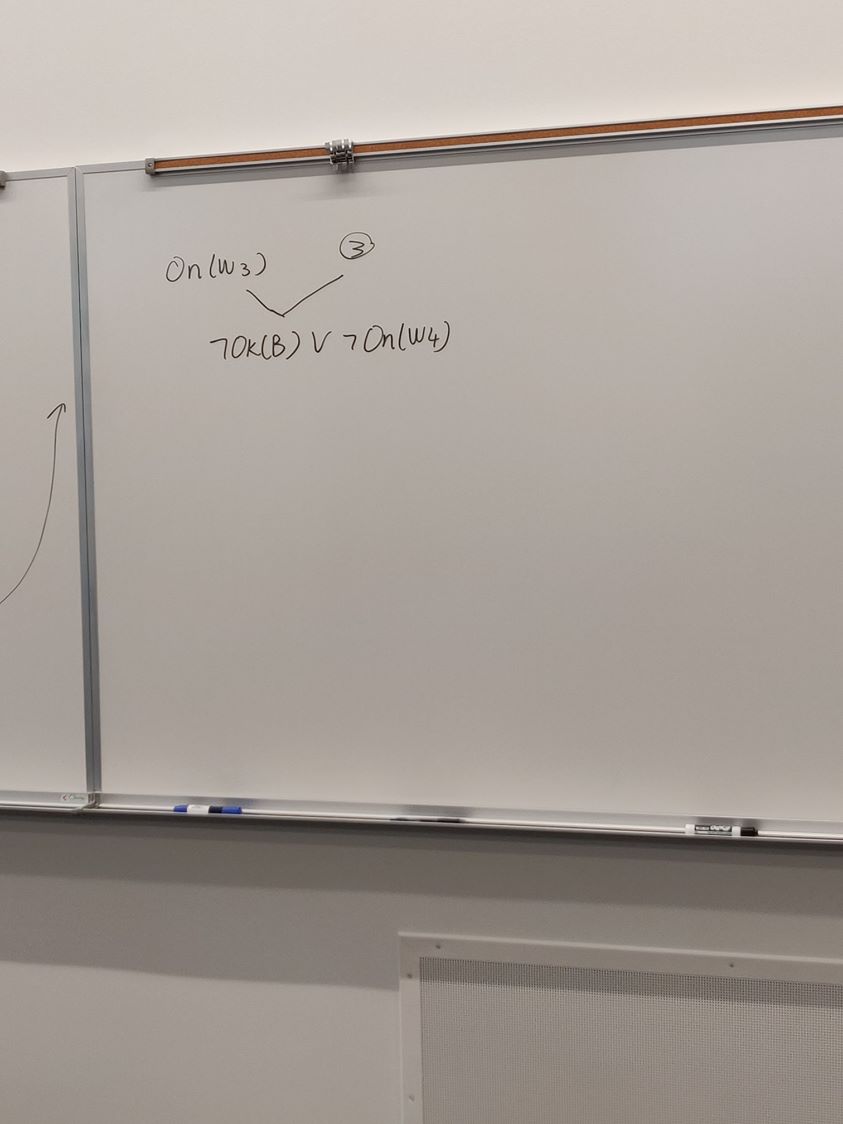 On(W3) ③
¬Ok(B) ∨ ¬On(W4)